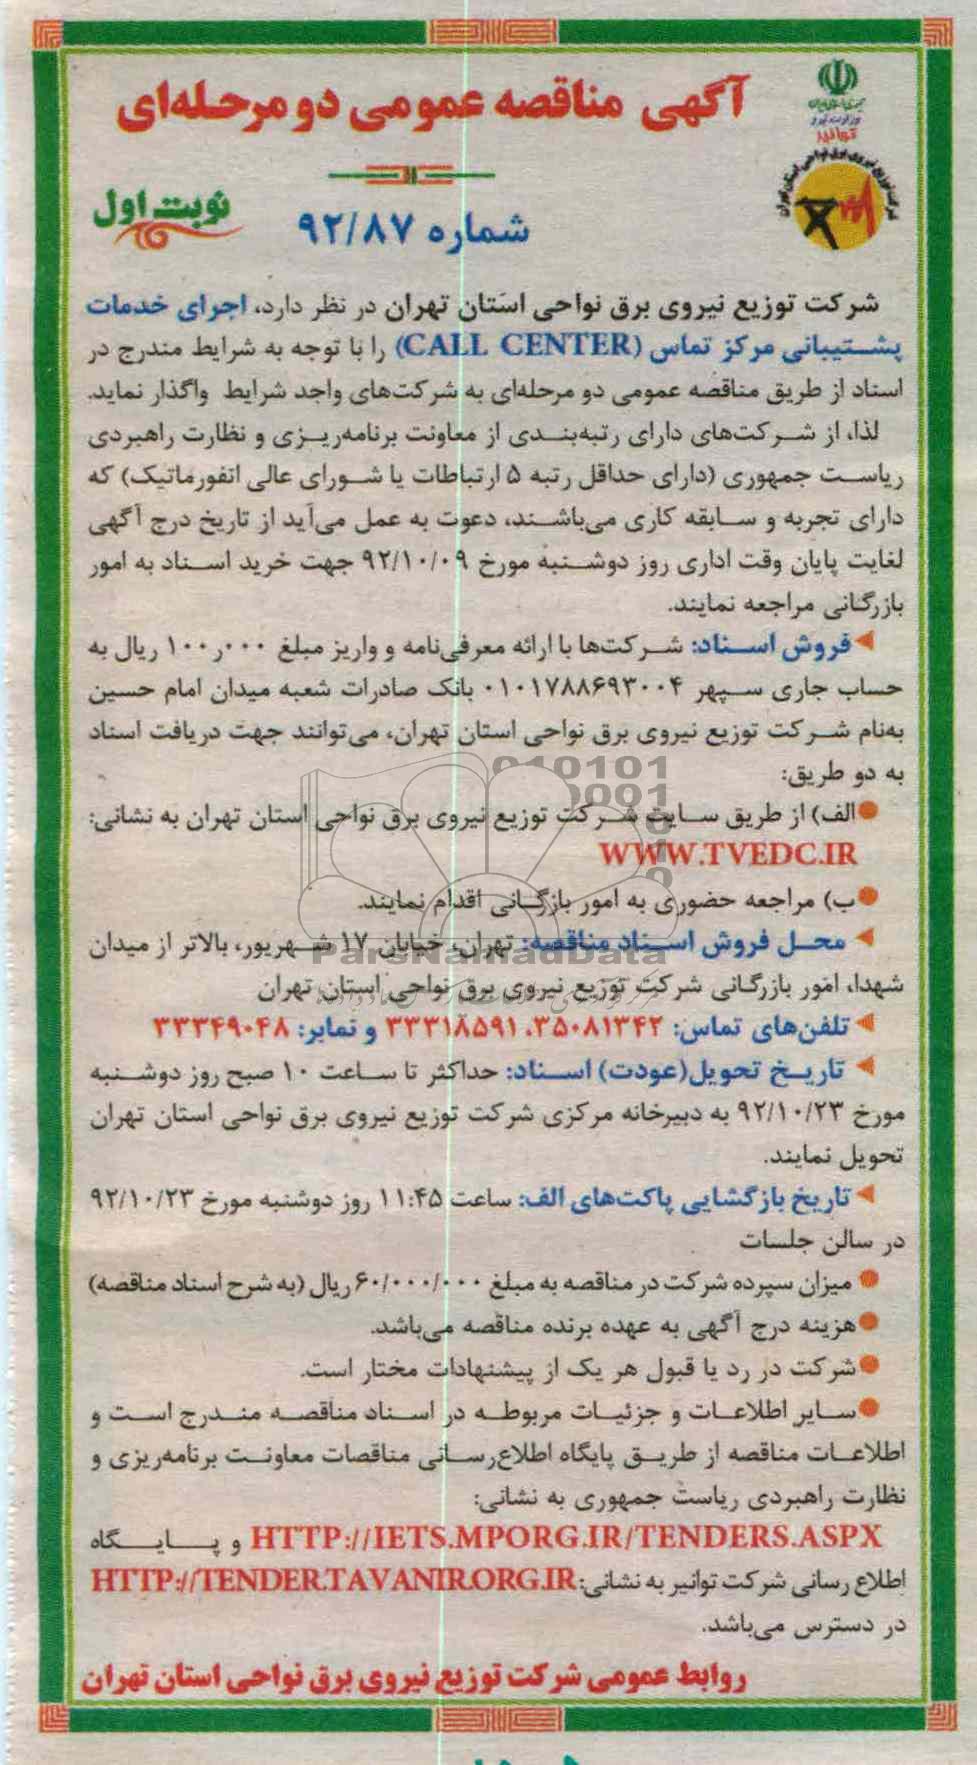 جمهوری اسلامی ایران
وزارت نیرو
توانیر
شرکت توزیع نیروی برق نواحی استان تهران
آگهی مناقصه عمومی دو مرحله‌ای
شماره ۹۲/۸۷
نوبت اول
شرکت توزیع نیروی برق نواحی استان تهران در نظر دارد، اجرای خدمات
پشتیبانی مرکز تماس (CALL CENTER) را با توجه به شرایط مندرج در
اسناد از طریق مناقصه عمومی دو مرحله‌ای به شرکت‌های واجد شرایط واگذار نماید.
لذا، از شرکت‌های دارای رتبه‌بندی از معاونت برنامه‌ریزی و نظارت راهبردی
ریاست جمهوری (دارای حداقل رتبه ۵ ارتباطات یا شورای عالی انفورماتیک) که
دارای تجربه و سابقه کاری می‌باشند، دعوت به عمل می‌آید از تاریخ درج آگهی
لغایت پایان وقت اداری روز دوشنبه مورخ ۹۲/۱۰/۰۹ جهت خرید اسناد به امور
بازرگانی مراجعه نمایند.
فروش اسناد: شرکت‌ها با ارائه معرفی‌نامه و واریز مبلغ ۱۰۰٫۰۰۰ ریال به
حساب جاری سپهر ۰۱۰۱۷۸۸۶۹۳۰۰۴ بانک صادرات شعبه میدان امام حسین
به‌نام شرکت توزیع نیروی برق نواحی استان تهران، می‌توانند جهت دریافت اسناد
به دو طریق:
الف) از طریق سایت شرکت توزیع نیروی برق نواحی استان تهران به نشانی:
WWW.TVEDC.IR
ب) مراجعه حضوری به امور بازرگانی اقدام نمایند.
محل فروش اسناد مناقصه: تهران، خیابان ۱۷ شهریور، بالاتر از میدان
ParsNamadData
شهدا، امور بازرگانی شرکت توزیع نیروی برق نواحی استان تهران
تلفن‌های تماس: ۳۵۰۸۱۳۴۲، ۳۳۳۱۸۵۹۱ و نمابر: ۳۳۳۴۹۰۴۸
تاریخ تحویل(عودت) اسناد: حداکثر تا ساعت ۱۰ صبح روز دوشنبه
مورخ ۹۲/۱۰/۲۳ به دبیرخانه مرکزی شرکت توزیع نیروی برق نواحی استان تهران
تحویل نمایند.
تاریخ بازگشایی پاکت‌های الف: ساعت ۱۱:۴۵ روز دوشنبه مورخ ۹۲/۱۰/۲۳
در سالن جلسات
میزان سپرده شرکت در مناقصه به مبلغ ۶۰/۰۰۰/۰۰۰ ریال (به شرح اسناد مناقصه)
هزینه درج آگهی به عهده برنده مناقصه می‌باشد.
شرکت در رد یا قبول هر یک از پیشنهادات مختار است.
سایر اطلاعات و جزئیات مربوطه در اسناد مناقصه مندرج است و
اطلاعات مناقصه از طریق پایگاه اطلاع‌رسانی مناقصات معاونت برنامه‌ریزی و
نظارت راهبردی ریاست جمهوری به نشانی:
HTTP://IETS.MPORG.IR/TENDERS.ASPX و پایگاه
اطلاع رسانی شرکت توانیر به نشانی: HTTP://TENDER.TAVANIR.ORG.IR
در دسترس می‌باشد.
روابط عمومی شرکت توزیع نیروی برق نواحی استان تهران